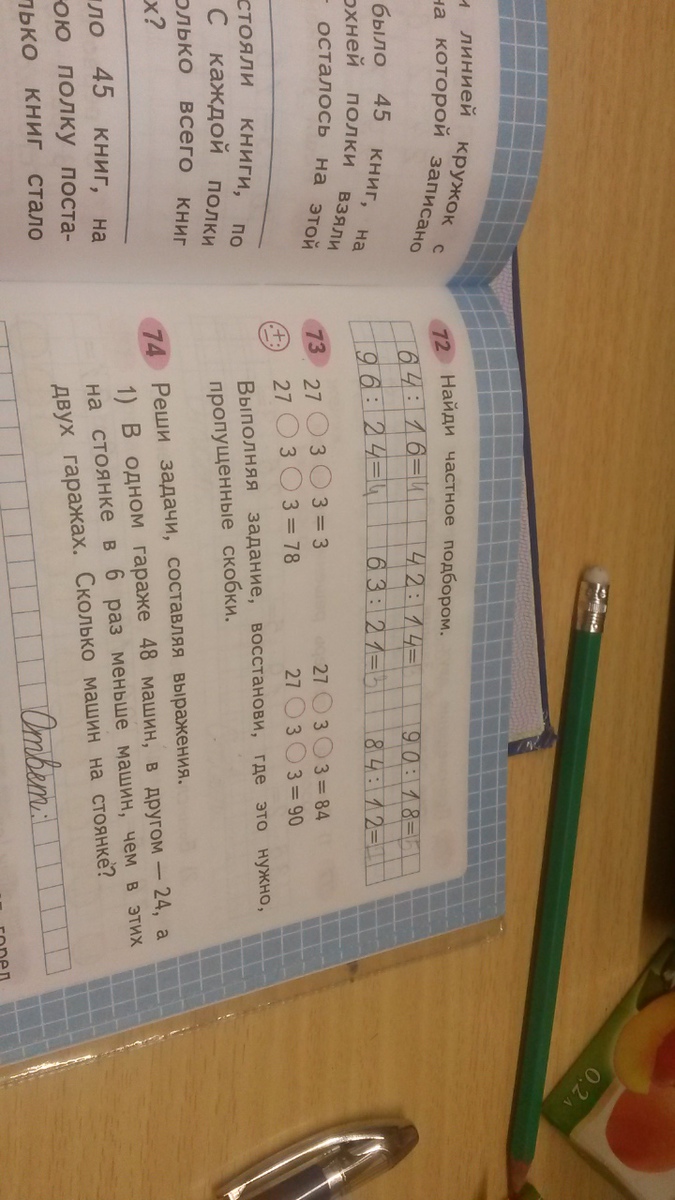 и линией кружок с
на которой записано
было 45 книг, на
рхней полки взяли
осталось на этой
стояли книги, по
С каждой полки
олько всего книг
х?
ло 45 книг, на
рою полку поста-
лько книг стало
72 Найди частное подбором.
64:16=4 42:14= 90:18=5
96:24=4 63:21=3 84:12=
73 27 ○ 3 ○ 3 = 3 27 ○ 3 ○ 3 = 84
27 ○ 3 ○ 3 = 78 27 ○ 3 ○ 3 = 90
Выполняя задание, восстанови, где это нужно,
пропущенные скобки.
74 Реши задачи, составляя выражения.
1) В одном гараже 48 машин, в другом — 24, а
на стоянке в 6 раз меньше машин, чем в этих
двух гаражах. Сколько машин на стоянке?
Ответ:
0,2 л